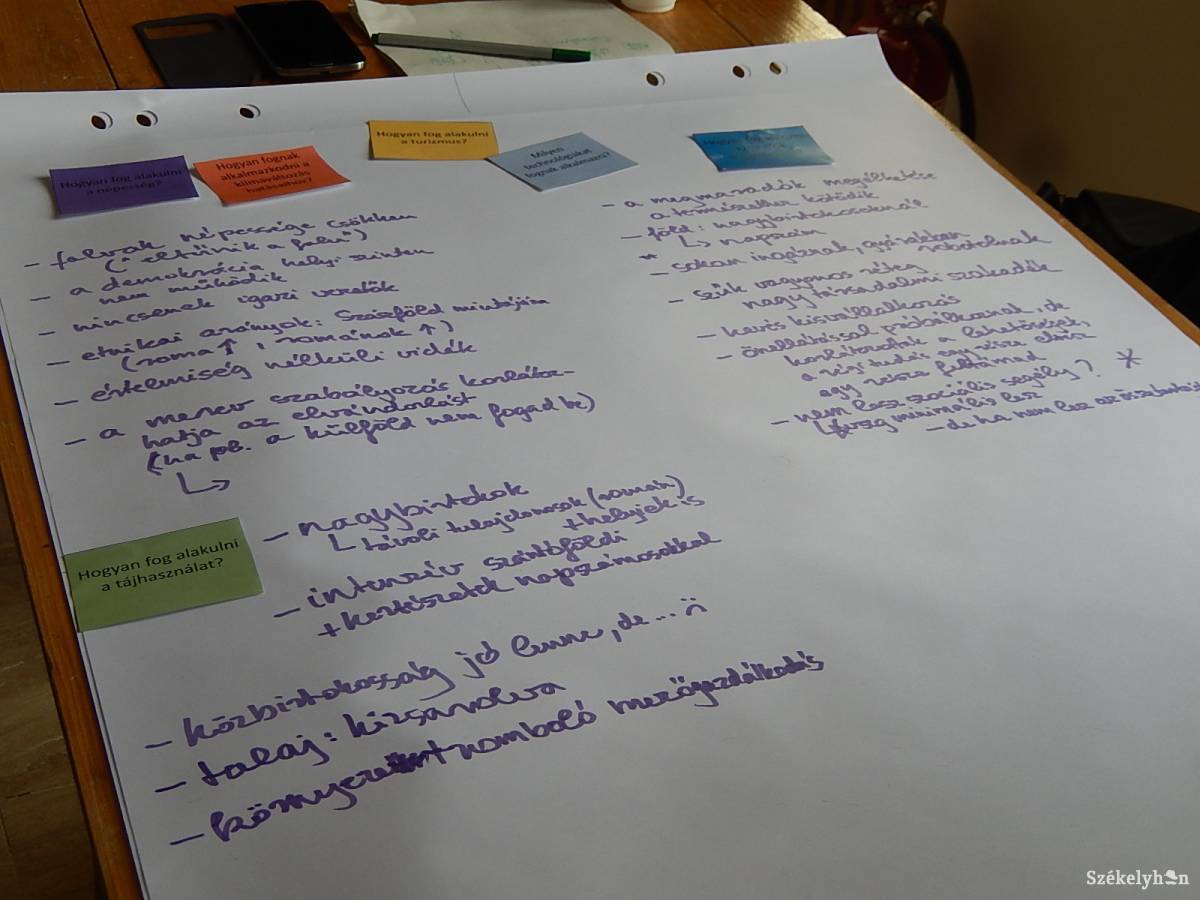 Hogyan fog alakulni
a népesség?
Hogyan fognak
alkalmazkodni a
klímaváltozás
hatásaihoz?
Hogyan fog alakulni
a turizmus?
Milyen
technológiákat
fognak alkalmazni?
– falvak népessége csökken
("eltűnik a falu")
– a demokrácia helyi szinten
nem működik
– nincsenek igazi vezetők
– etnikai arányok: Szászföld mintájára
(roma ↑, románok ↑)
– értelmiség nélküli vidék
– a merev szabályozás korlátoz-
hatja az elvándorlást
(ha pl. a külföld nem fogad be)
↳
Hogyan fog alakulni
a tájhasználat?
– nagybirtokok
↳ távoli tulajdonosok (román)
+ helyiek is
– intenzív szántóföldi
+ kertészetek napszámosokkal
– közbirtokosság jó lenne, de... :(
– talaj: kizsarolva
– környezetromboló mezőgazdálkodás
– a megmaradók megélhetése
a természethez kötődik
– föld: nagybirtokosoknál
↳ napszám
* – sokan ingáznak, gyárakban
robotolnak
– szűk vagyonos réteg
nagy társadalmi szakadék
– kevés kisvállalkozás
– önellátással próbálkoznak, de
korlátozottak a lehetőségek,
a régi tudás egy része elvész
egy része feltámad
– nem lesz szociális segély? *
↳ vagy minimális lesz
– de ha nem lesz az is
Székelyhon